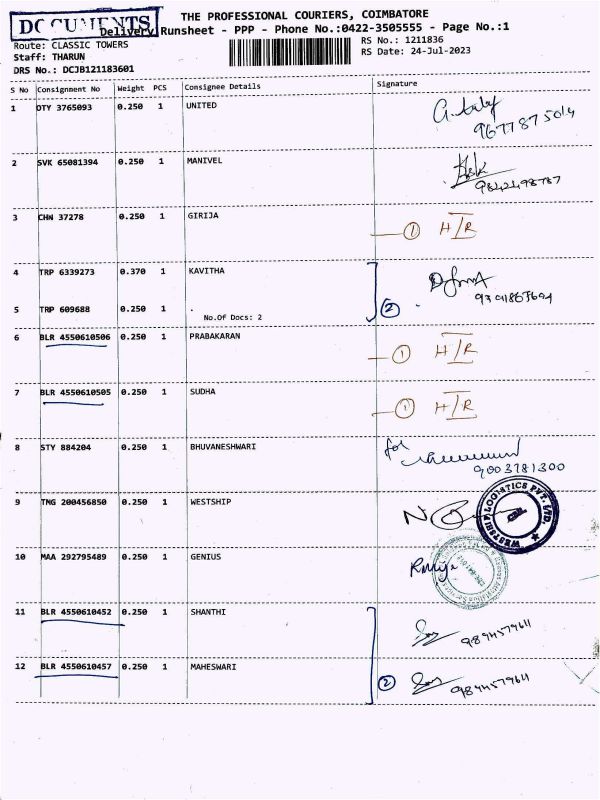 DOCUMENTS
THE PROFESSIONAL COURIERS, COIMBATORE
Delivery Runsheet - PPP - Phone No.:0422-3505555 - Page No.:1
Route: CLASSIC TOWERS
RS No.: 1211836
Staff: THARUN
RS Date: 24-Jul-2023
DRS No.: DCJB121183601
S No Consignment No Weight PCS Consignee Details Signature
1 OTY 3765093 0.250 1 UNITED
9677875014
2 SVK 65081394 0.250 1 MANIVEL
9842498787
3 CHN 37278 0.250 1 GIRIJA
1 H/R
4 TRP 6339273 0.370 1 KAVITHA
5 TRP 609688 0.250 1 .
No.Of Docs: 2
2
6 BLR 4550610506 0.250 1 PRABAKARAN
1 H/R
7 BLR 4550610505 0.250 1 SUDHA
1 H/R
8 STY 884204 0.250 1 BHUVANESHWARI
for
9003781300
9 TNG 200456850 0.250 1 WESTSHIP
WESTSHIP LOGISTICS PVT. LTD.
CBE
10 MAA 292795489 0.250 1 GENIUS
11 BLR 4550610452 0.250 1 SHANTHI
9894579611
12 BLR 4550610457 0.250 1 MAHESWARI
2
9894579611